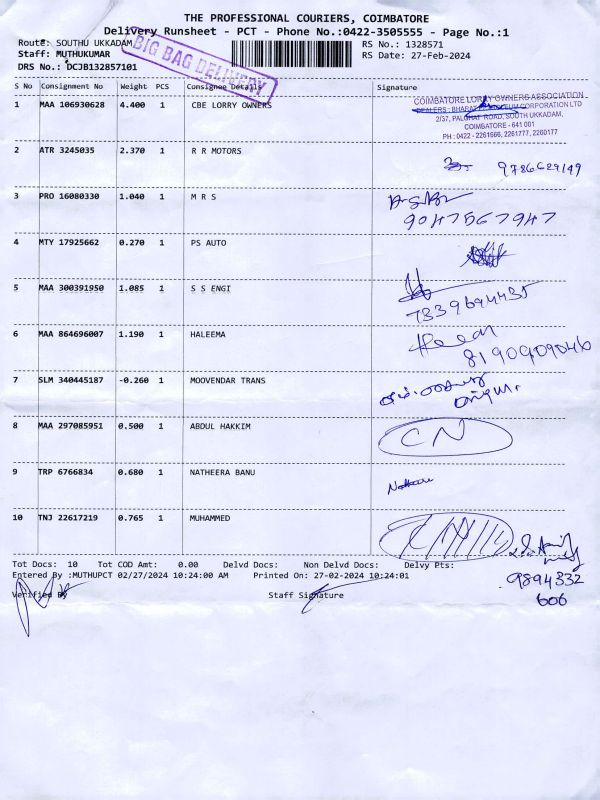 THE PROFESSIONAL COURIERS, COIMBATORE
Delivery Runsheet - PCT - Phone No.:0422-3505555 - Page No.:1
Route: SOUTHU UKKADAM
RS No.: 1328571
Staff: MUTHUKUMAR
RS Date: 27-Feb-2024
DRS No.: DCJB132857101
BIG BAG DELIVERY
S No Consignment No Weight PCS Consignee Details Signature
1 MAA 106930628 4.400 1 CBE LORRY OWNERS
COIMBATORE LORRY OWNERS ASSOCIATION
DEALERS : BHARAT PETROLEUM CORPORATION LTD
2/37, PALGHAT ROAD, SOUTH UKKADAM,
COIMBATORE - 641 001
PH : 0422 - 2261666, 2261777, 2260177
2 ATR 3245035 2.370 1 R R MOTORS
9786629149
3 PRO 16080330 1.040 1 M R S
9047567947
4 MTY 17925662 0.270 1 PS AUTO
5 MAA 300391950 1.085 1 S S ENGI
7339694435
6 MAA 864696007 1.190 1 HALEEMA
8190909046
7 SLM 340445187 -0.260 1 MOOVENDAR TRANS
8 MAA 297085951 0.500 1 ABDUL HAKKIM
CN
9 TRP 6766834 0.680 1 NATHEERA BANU
10 TNJ 22617219 0.765 1 MUHAMMED
Tot Docs: 10 Tot COD Amt: 0.00 Delvd Docs: Non Delvd Docs: Delvy Pts:
Entered By :MUTHUPCT 02/27/2024 10:24:00 AM Printed On: 27-02-2024 10:24:01
9894332
606
Verified By Staff Signature